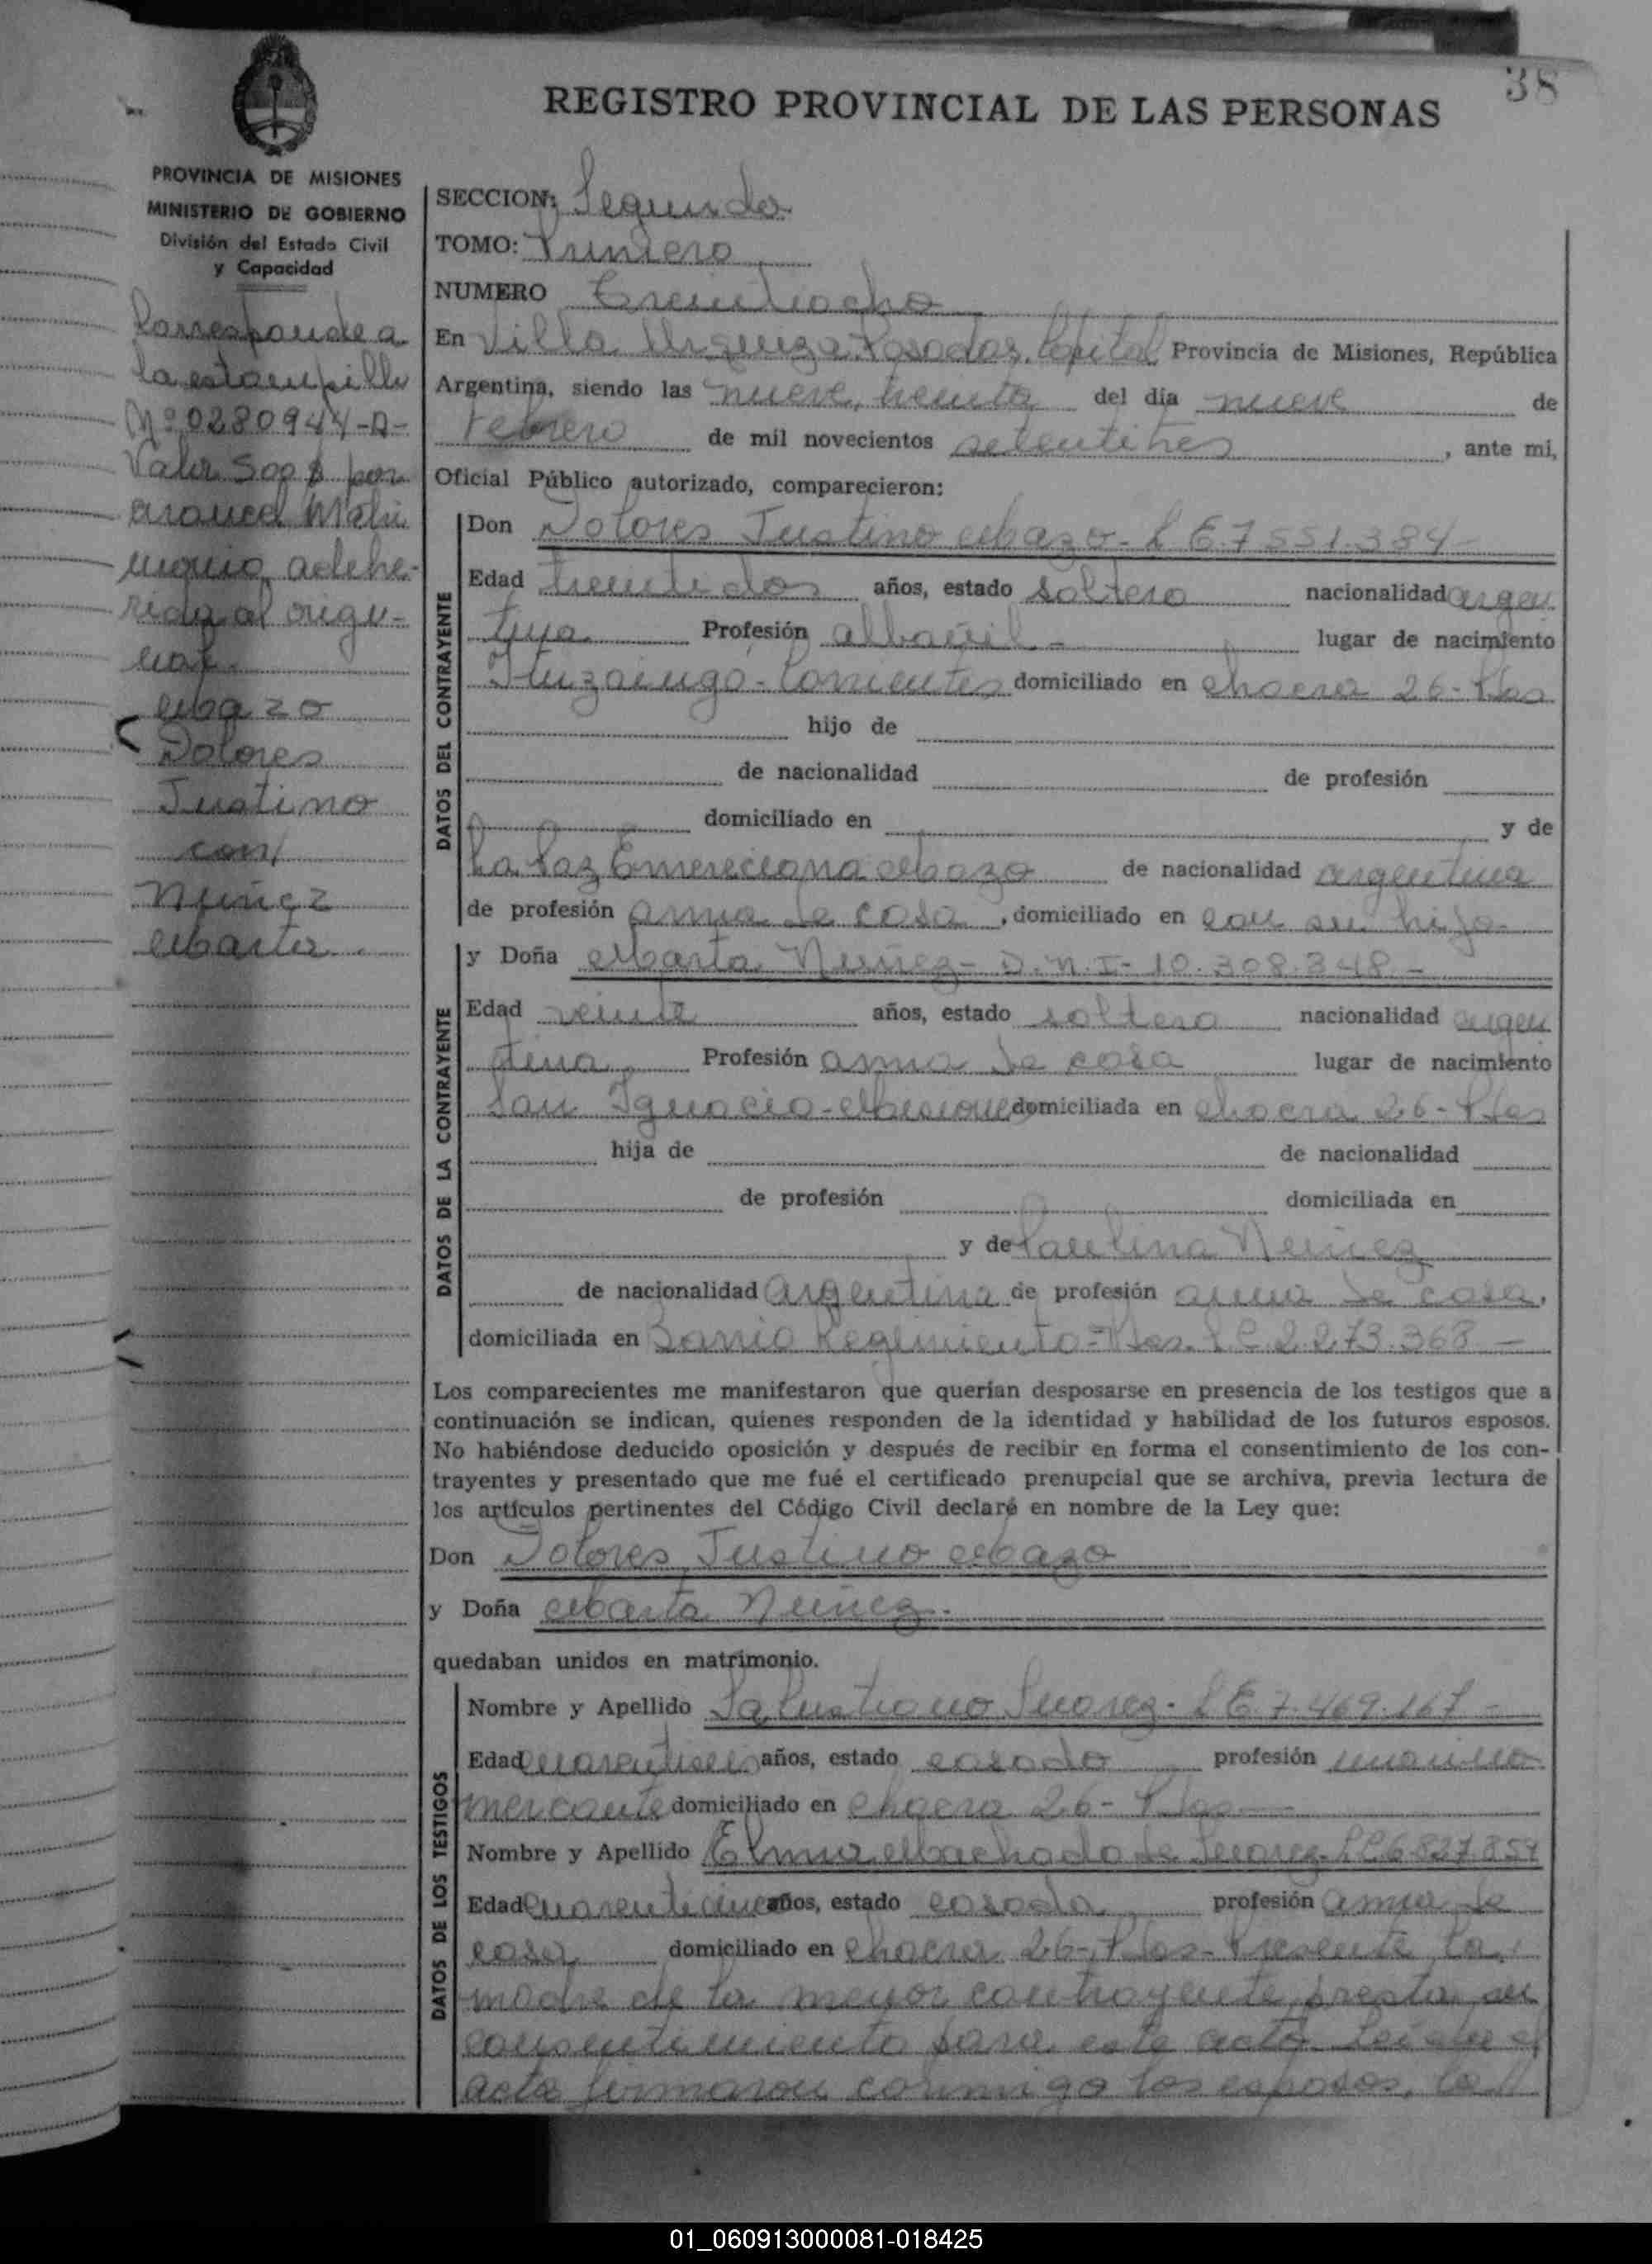 38
REGISTRO PROVINCIAL DE LAS PERSONAS
PROVINCIA DE MISIONES
MINISTERIO DE GOBIERNO
División del Estado Civil
y Capacidad
Corresponde a
la estampilla
Nº 0280944-A-
Valor 500 $ por
arancel Matri
monio, adehe-
rida al origi-
nal.
Mazo
Dolores
Justino
con
Nuñez
Marta.
SECCION: Segunda
TOMO: Primero
NUMERO Treintiocho
En Villa Urquiza Posadas, Capital Provincia de Misiones, República
Argentina, siendo las nueve, treinta del día nueve de
Febrero de mil novecientos setentitres, ante mi,
Oficial Público autorizado, comparecieron:
DATOS DEL CONTRAYENTE
Don Dolores Justino Mazo - L E 7.551.384-
Edad treintidos años, estado soltero nacionalidad argen
tina Profesión albañil - lugar de nacimiento
Ituzaingó - Corrientes domiciliado en chacra 26 - Pdas
hijo de
de nacionalidad de profesión
domiciliado en y de
La Paz Emereciana Mazo de nacionalidad argentina
de profesión ama de casa, domiciliado en con su hijo-
DATOS DE LA CONTRAYENTE
y Doña Marta Nuñez - D.N.I - 10.308.348. -
Edad veinte años, estado soltera nacionalidad argen
tina, Profesión ama de casa lugar de nacimiento
San Ignacio - Misiones domiciliada en chacra 26 - Pdas
hija de de nacionalidad
de profesión domiciliada en
y de Paulina Nuñez
de nacionalidad argentina de profesión ama de casa,
domiciliada en Barrio Regimiento - Pdas. L C 2.273.368 -
Los comparecientes me manifestaron que querían desposarse en presencia de los testigos que a
continuación se indican, quienes responden de la identidad y habilidad de los futuros esposos.
No habiéndose deducido oposición y después de recibir en forma el consentimiento de los con-
trayentes y presentado que me fué el certificado prenupcial que se archiva, previa lectura de
los artículos pertinentes del Código Civil declaré en nombre de la Ley que:
Don Dolores Justino Mazo
y Doña Marta Nuñez.
quedaban unidos en matrimonio.
DATOS DE LOS TESTIGOS
Nombre y Apellido Salustiano Suarez - L E 7.469.167 -
Edad cuarentiseis años, estado casado profesión marino
mercante domiciliado en chacra 26 - Pdas -
Nombre y Apellido Elma Machado de Suarez - L C 6.827.859
Edad cuarenticinco años, estado casada profesión ama de
casa domiciliado en chacra 26 - Pdas - Presente la
madre de la menor contrayente, presta su
consentimiento para este acto. Leida el
acta firmaron conmigo los esposos, la
01_060913000081-018425